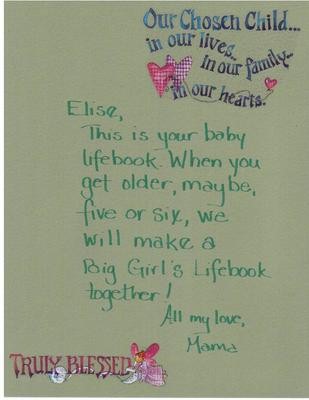 Our Chosen Child...
in our lives..
In our family..
in our hearts.
Elise,
This is your baby
lifebook. When you
get older, maybe,
five or six, we
will make a
Big Girl's Lifebook
together!
All my love,
Mama
TRULY BLESSED